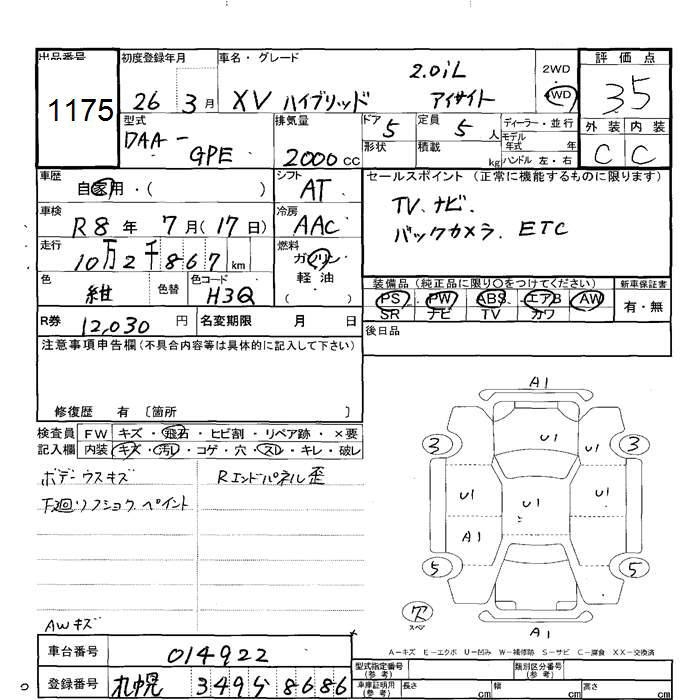 出品番号 初度登録年月 車名・グレード 評価点
1175
26年 3月
XV ハイブリッド 2.0iL アイサイト
2WD 4WD
35
型式 DAA- GPE
排気量 2000cc
ドア 5 定員 5人
形状 積載 kg
ディーラー・並行
モデル年式 年
ハンドル 左・右
外装 内装
C C
車歴 自家用・( )
シフト AT
セールスポイント (正常に機能するものに限ります)
TV、ナビ、
バックカメラ、ETC
車検 R8年 7月(17日)
冷房 AAC
走行 10万2千867km
燃料 ガソリン 軽油 ( )
色 紺 色替 色コード H3Q
装備品 (純正品に限り○をつけてください) 新車保証書
PS PW ABS エアB AW 有・無
SR ナビ TV カワ
R券 12,030円 名変期限 月 日
後日品
注意事項申告欄(不具合内容等は具体的に記入して下さい)
修復歴 有 〔箇所 〕
検査員記入欄 FW キズ・飛石・ヒビ割・リペア跡・×要
内装 キズ・汚レ・コゲ・穴・スレ・キレ・破レ
ボデーウスキズ Rエンドパネル歪
下廻リフショク、ペイント
AWキズ
A1
3 U1 U1 3
U1 U1 U1
A1
5 5
穴
スペア
A1
A-キズ E-エクボ U-凹み W-補修跡 S-サビ C-腐食 XX-交換済
車台番号 014922
登録番号 札幌 349 8686
型式指定番号(参考) 類別区分番号(参考)
車庫証明用(参考) 長さ cm 幅 cm 高さ cm